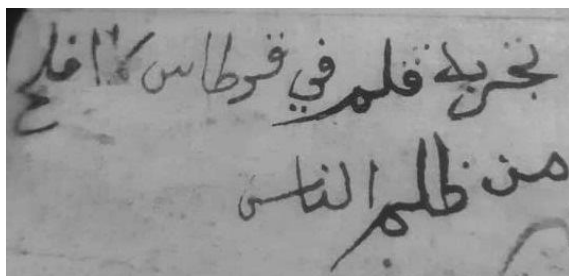 تجربة قلم في قرطاس لا افلح
من ظلم الناس